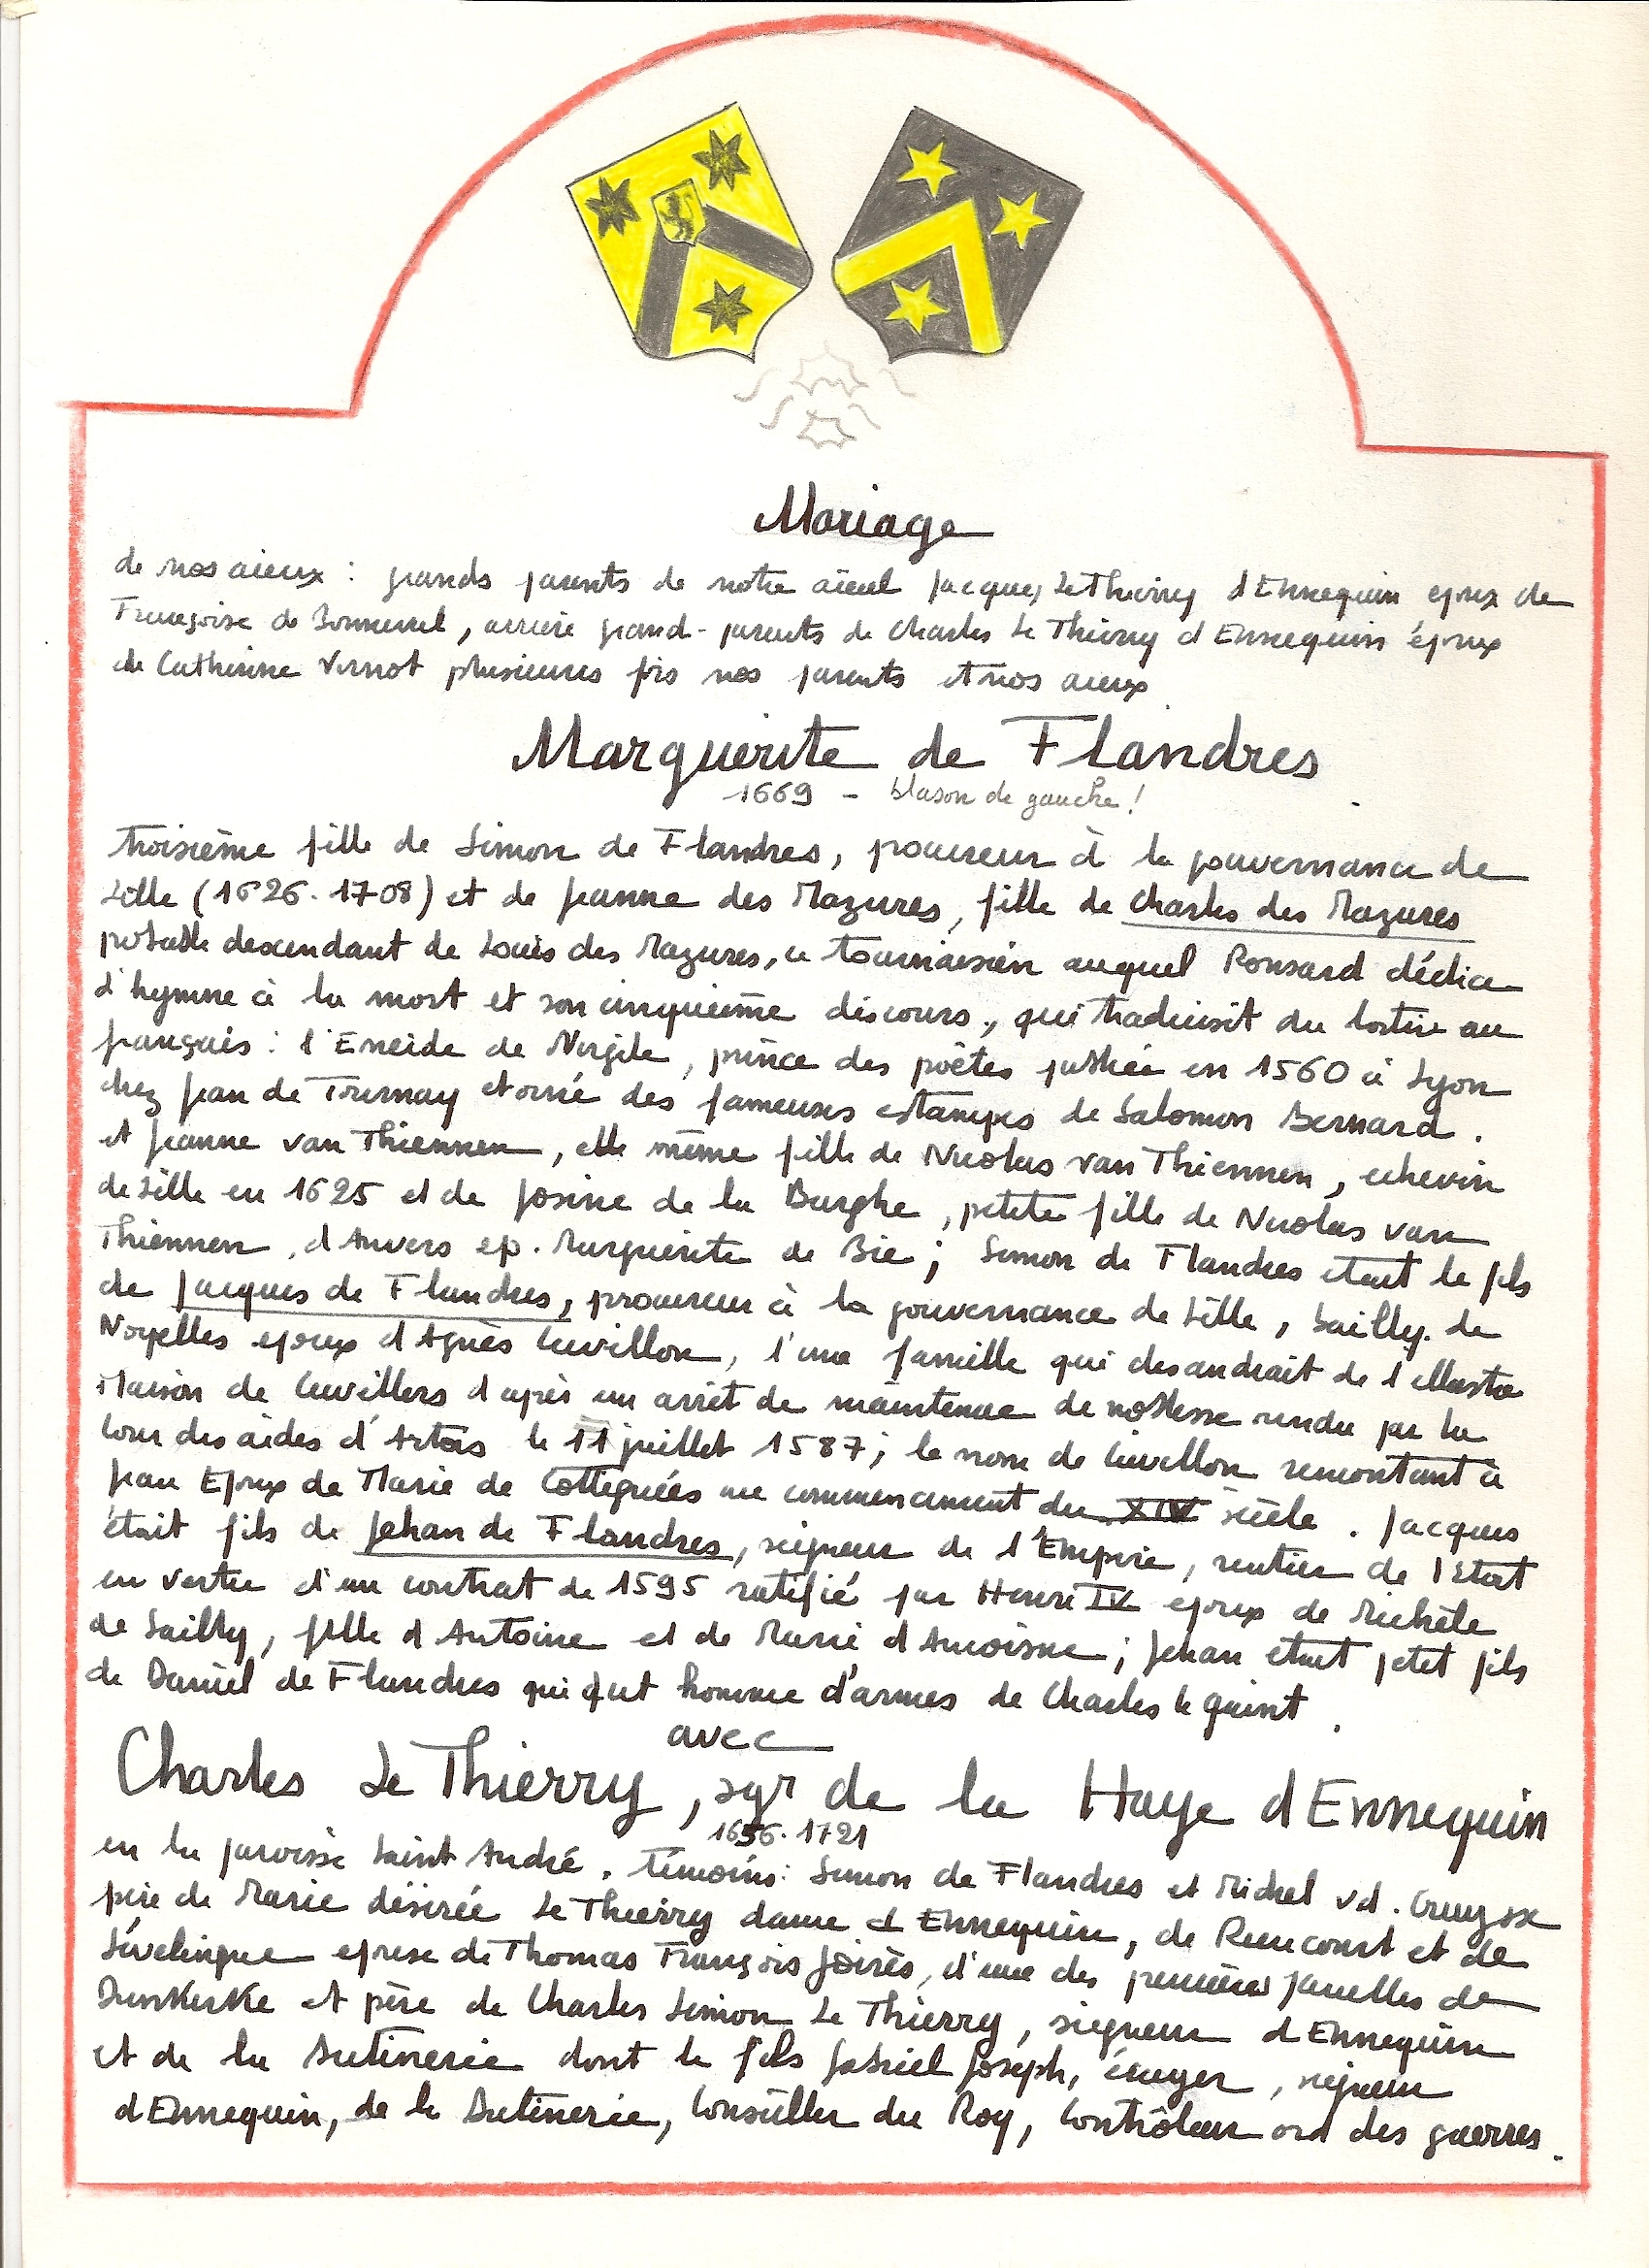 Mariage
de nos aieux : grands parents de notre aïeul Jacques Le Thierry d'Ennequin epoux de
Françoise de Bonnevral, arriere grand-parents de Charles Le Thierry d'Ennequin époux
de Catherine Vernot plusieures fois nos parents et nos aieux
Marguerite de Flandres
1669 - blason de gauche !
troisième fille de Simon de Flandres, procureur à la gouvernance de
Lille (1626.1708) et de Jeanne des Mazures, fille de Charles des Mazures
probable descendant de Louis des Mazures, ce tournaisien auquel Ronsard dédica
l'hymne à la mort et son cinquième discours, qui traduisit du latin au
français : l'Eneide de Virgile, prince des poètes publiée en 1560 à Lyon
chez Jean de Tournay et orné des fameuses estampes de Salomon Bernard.
et Jeanne van Thiennen, elle même fille de Nicolas van Thiennen, echevin
de Lille en 1625 et de Josine de la Burghe, petite fille de Nicolas van
Thiennen, d'Anvers ep. Marguerite de Bie ; Simon de Flandres etait le fils
de Jacques de Flandres, procureur à la gouvernance de Lille, bailly de
Noyelles epoux d'Agnès Cuvillon, d'une famille qui descendrait de l'illustre
Maison de Cuvillers d'après un arrêt de maintenue de noblesse rendu par la
Cour des aides d'Artois le 11 juillet 1587 ; le nom de Cuvillon remontant à
Jean Epoux de Marie de Cottegnies au commencement du XIV siècle. Jacques
était fils de Jehan de Flandres, seigneur de l'Empire, rentier de l'Etat
en vertu d'un contrat de 1595 ratifié par Henri IV epoux de Michèle
de Sailly, fille d'Antoine et de Marie d'Amoisne ; Jehan etait petit fils
de Daniel de Flandres qui fut homme d'armes de Charles le Quint.
avec
Charles Le Thierry, sgr de la Haye d'Ennequin
1656.1721
en la paroisse Saint André. témoins : Simon de Flandres et Michel vd. Cruysse
père de Marie désirée Le Thierry dame d'Ennequin, de Rencourt et de
Sévelingue epouse de Thomas François Joirès, d'une des premières familles de
Dunkerke et père de Charles Simon Le Thierry, siegneur d'Ennequin
et de la Butinerie dont le fils Gabriel Joseph, écuyer, siegneur
d'Ennequin, de la Butinerie, Conseiller du Roy, Contrôleur ord des guerres.